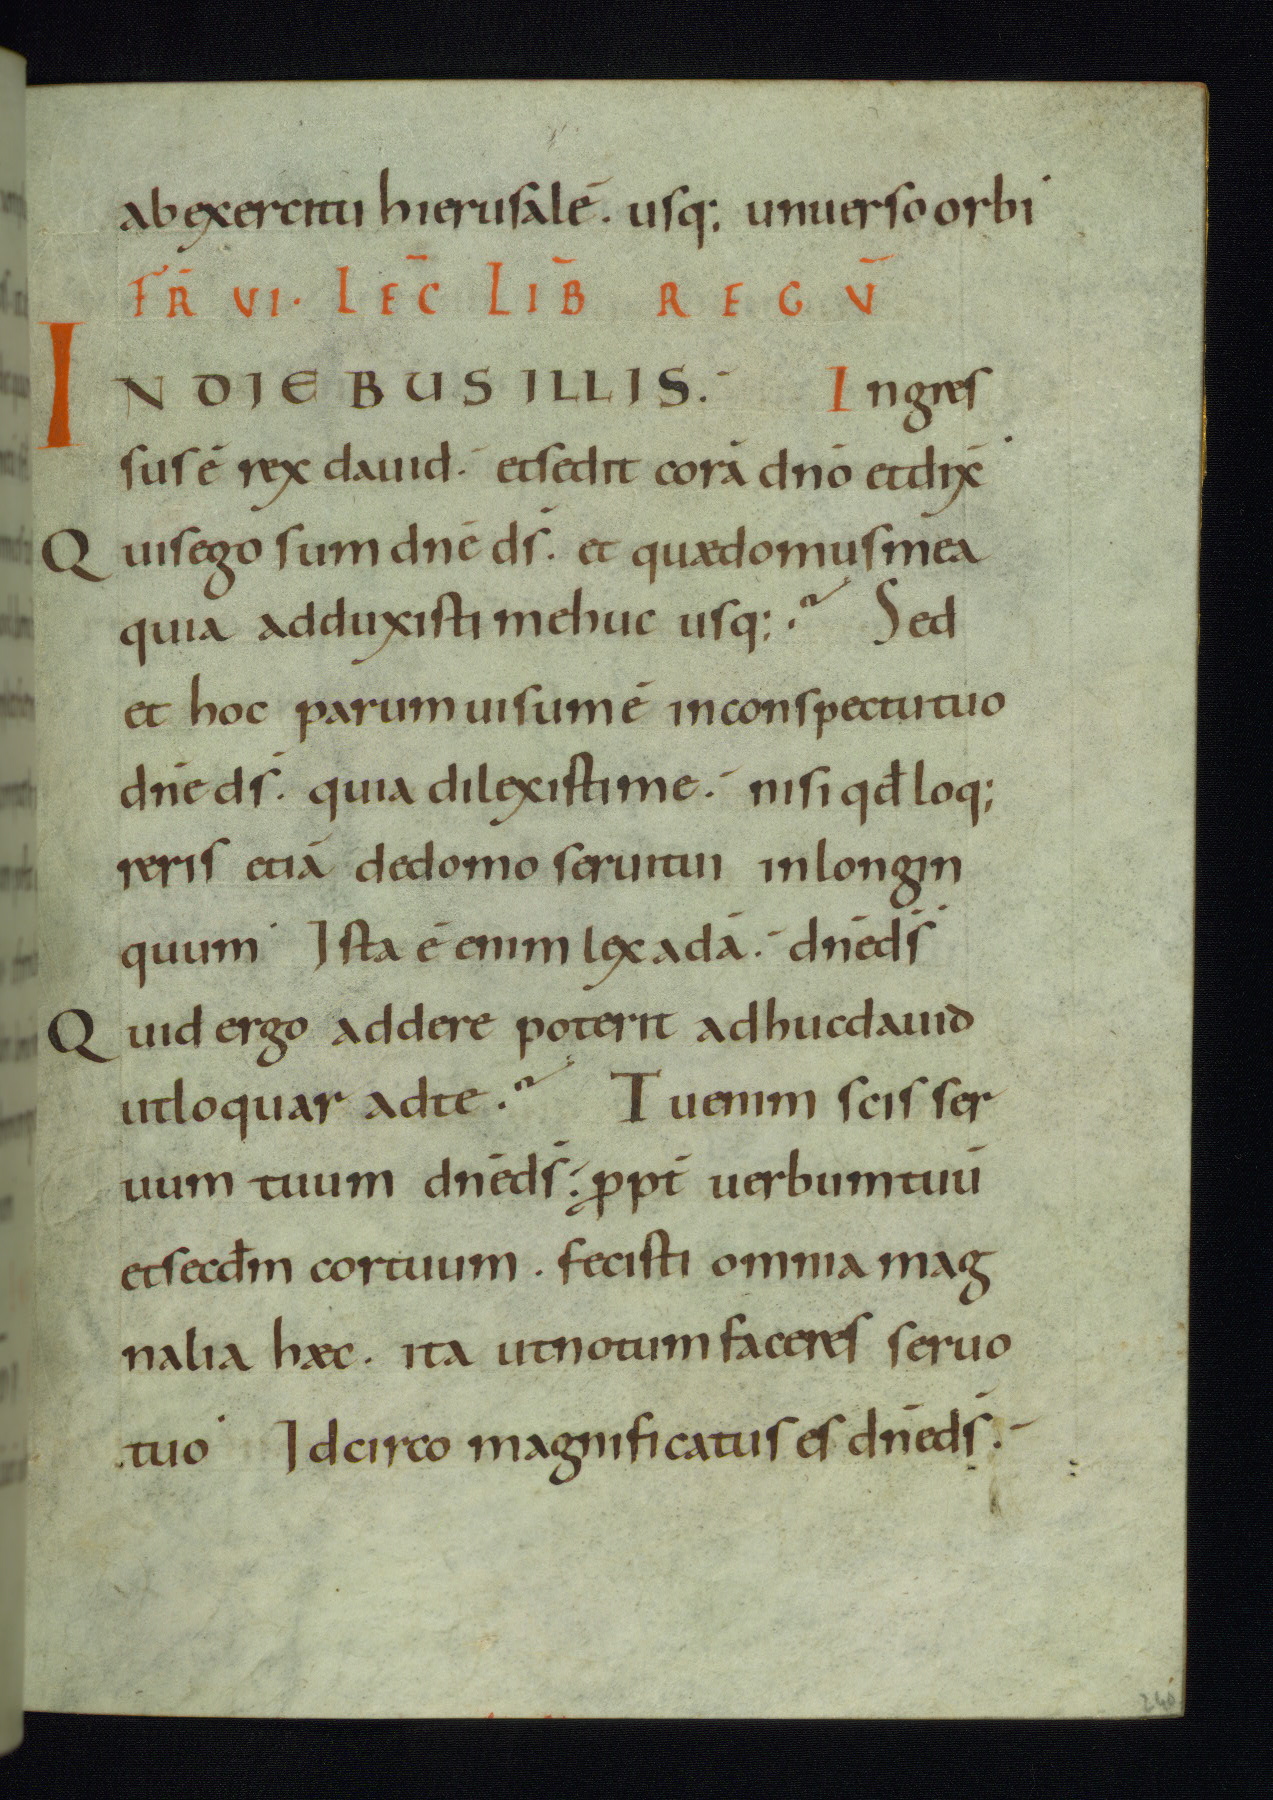 ab exercitu hierusalē. usq; uniuerso orbi
FR̄ VI. LEC̄ LIB̄ REGŪ
IN DIEBUS ILLIS. Ingres
sus ē rex dauid. et sedit corā dnō et dix̄
Quis ego sum dnē ds̄. et quae domus mea
quia adduxisti me huc usq;. Sed
et hoc parum uisum ē in conspectu tuo
dnē ds̄. quia dilexisti me. nisi qđ loq;
reris etiā de domo serui tui in longin
quum Ista ē enim lex adā. dnē ds̄
Quid ergo addere poterit adhuc dauid
ut loquar ad te. Tu enim scis ser
uum tuum dnē ds̄. ꝓpt̄ uerbum tuū
et secđm cor tuum. fecisti omnia mag
nalia haec. ita ut notum faceres seruo
tuo Idcirco magnificatus es dnē ds̄.
240